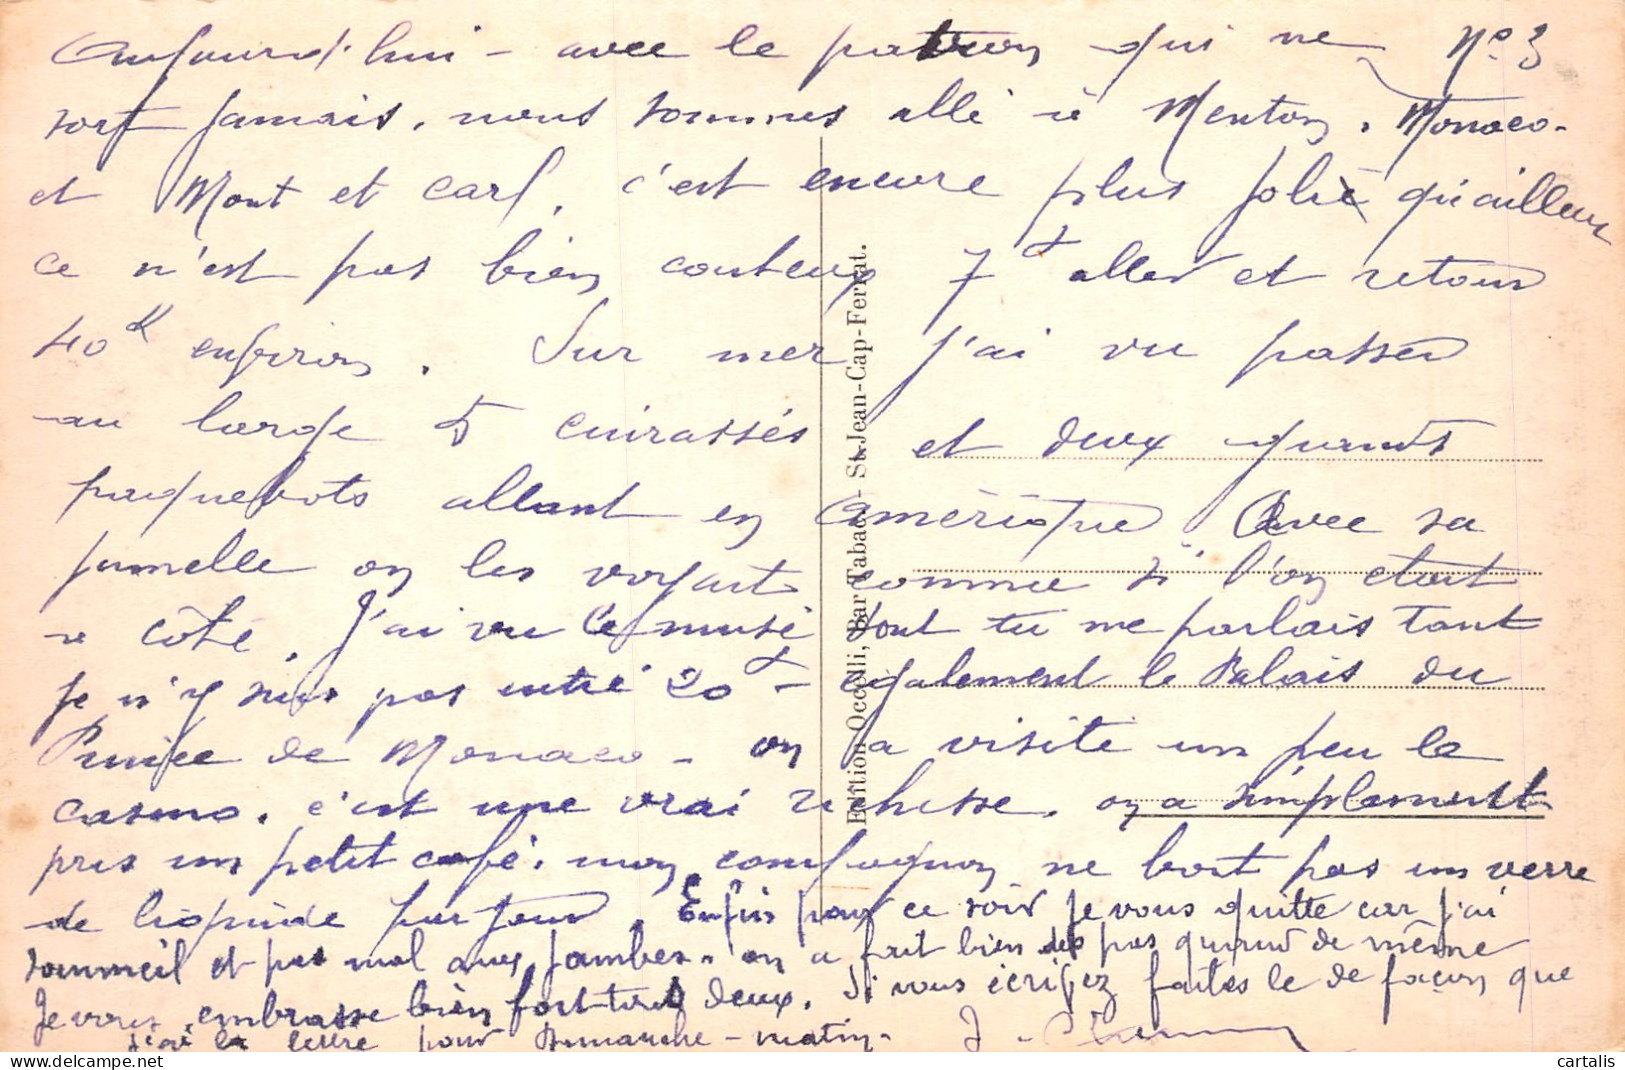 Aujourd'hui - avec le patron qui ne N° 3
sort jamais, nous sommes allé à Menton, Monaco -
et Mont et Carl, c'est encore plus jolie qu'ailleurs
ce n'est pas bien couteux 7f aller et retour
40k environ. Sur mer j'ai vu passer
au large 5 cuirassés et deux grands
paquebots allant en Amérique Avec sa
jumelle on les voyait comme si l'on etait
a côté. J'ai vu le musé dont tu me parlais tant
je n'y suis pas entré 20f - egalement le Palais du
Prince de Monaco - on a visité un peu le
casino. c'est une vrai richesse. on a simplement
pris un petit café. mon compagnon ne boit pas un verre
de liquide par jour. Enfin pour ce soir je vous quitte car j'ai
sommeil et pas mal aux jambes. on a fait bien des pas quand de même
Je vous embrasse bien fort tout deux. Si vous écrivez faites le de façon que
j'ai la lettre pour Dimanche - matin. J.
Edition Occelli, Bar Tabac - St. Jean-Cap-Ferrat.
cartalis